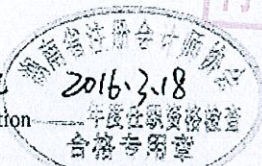 湖南省注册会计师协会
2016.3.18
tion
年度任职资格检查
合格专用章